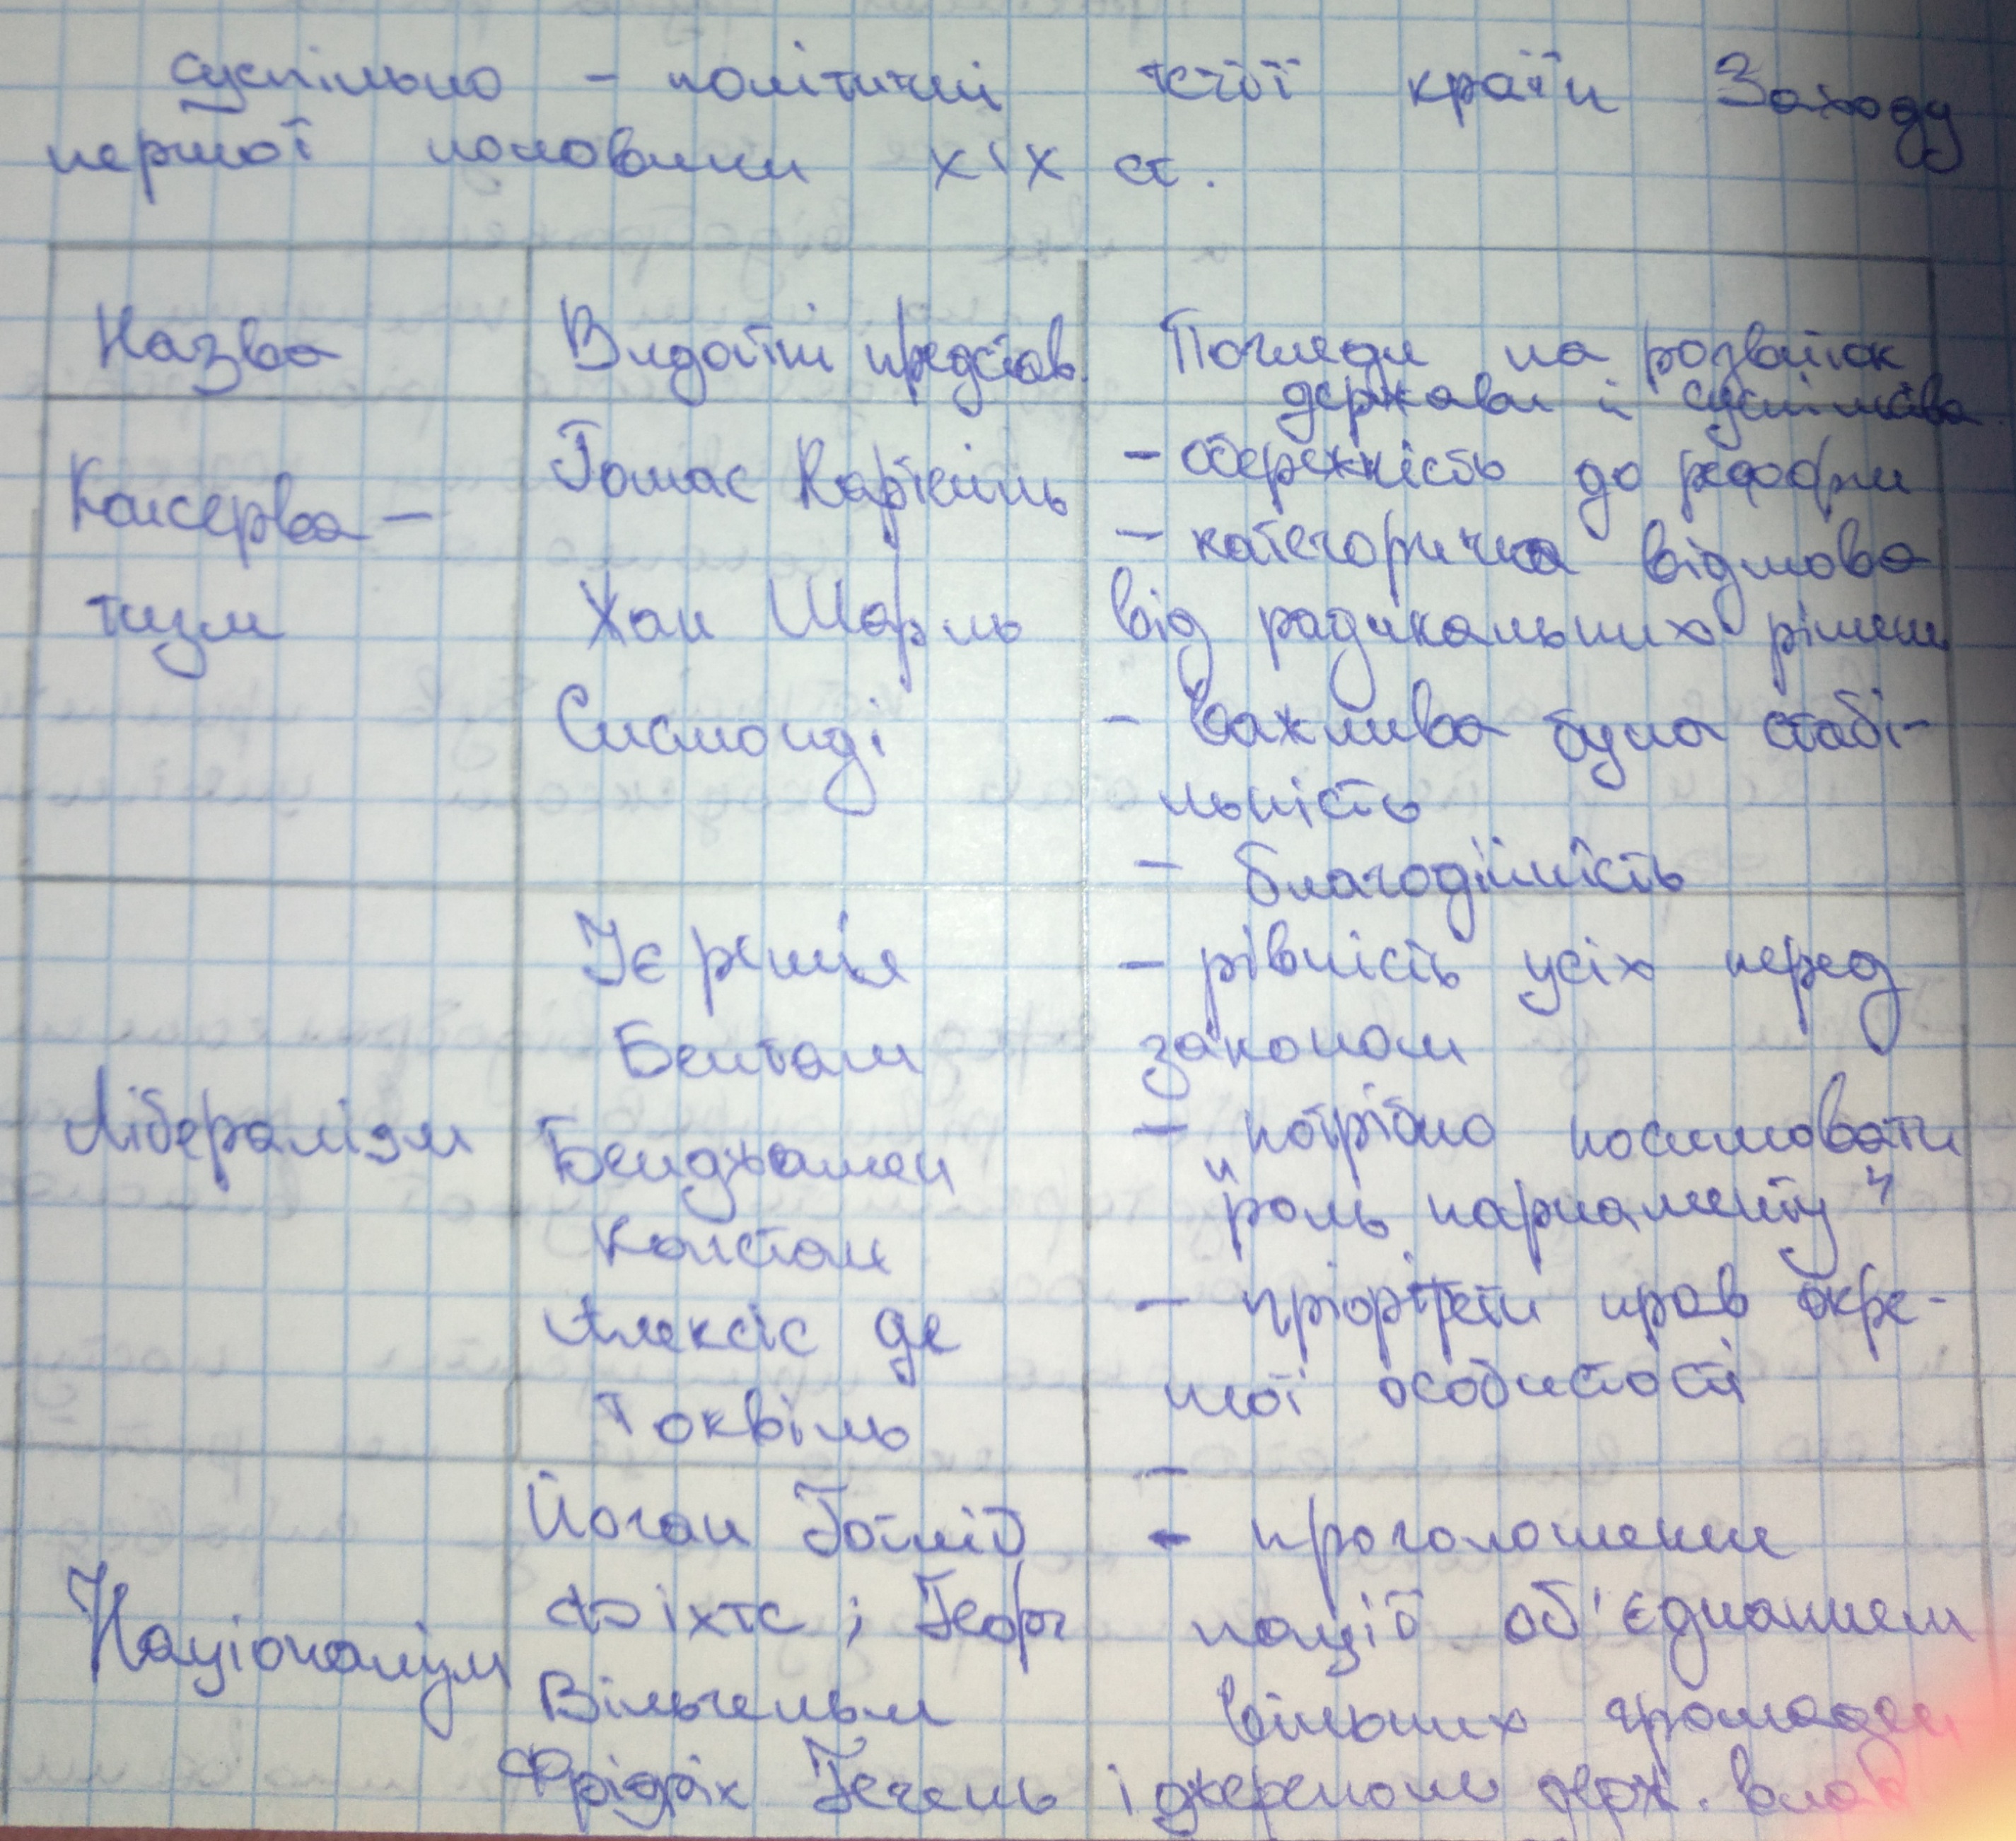 суспільно - політичні течії країн Заходу
першої половини XIX ст.
Назва
Видатні представ.
Погляди на розвиток
держави і суспільства
Консерва-
тизм
Томас Карлейль
Жан Шарль
Сисмонді
- обережність до реформ
- категорична відмова
від радикальних рішень
- важлива була стабі-
льність
- благодійність
Лібералізм
Ієремія
Бентам
Бенджамен
Констан
Алексіс де
Токвіль
- рівність усіх перед
законом
- потрібно посилювати
"роль парламенту"
- пріорітети прав окре-
мої особистості
-
Націоналізм
Йоган Готліб
Фіхте; Георг
Вільгельм
Фрідріх Гегель
- проголошення
нації об'єднанням
вільних громадян
і джерелом держ. влад